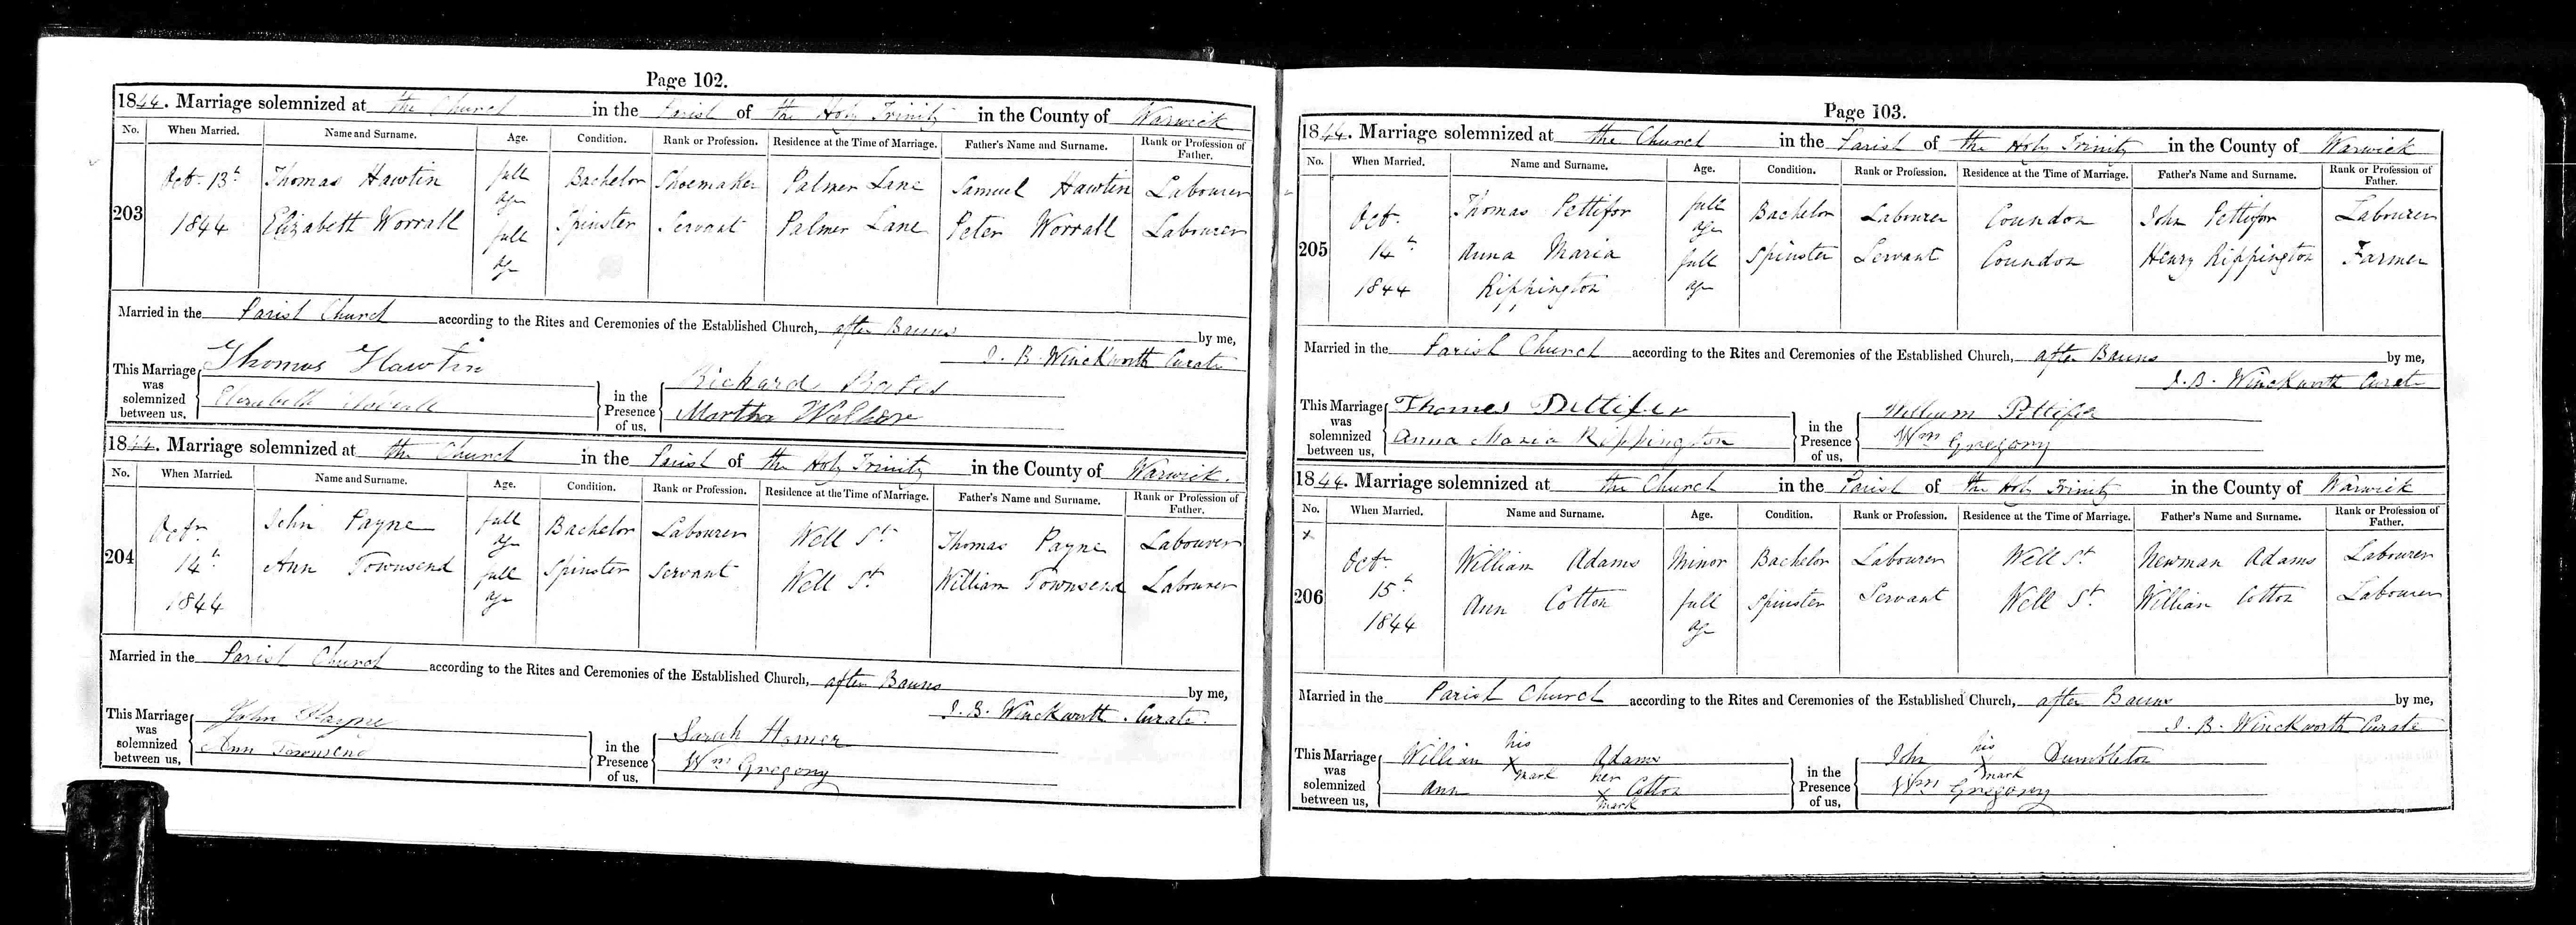 Page 102.
1844. Marriage solemnized at the Church in the Parish of the Holy Trinity in the County of Warwick
No. When Married. Name and Surname. Age. Condition. Rank or Profession. Residence at the Time of Marriage. Father's Name and Surname. Rank or Profession of Father.
203 Oct. 13th 1844 Thomas Hawtin full age Bachelor Shoemaker Palmer Lane Samuel Hawtin Labourer
Elizabeth Worrall full age Spinster Servant Palmer Lane Peter Worrall Labourer
Married in the Parish Church according to the Rites and Ceremonies of the Established Church, after Banns by me,
J. B. Winckworth Curate
This Marriage was solemnized between us, Thomas Hawtin in the Presence of us, Richard Bates
Elizabeth Martha Walker
1844. Marriage solemnized at the Church in the Parish of the Holy Trinity in the County of Warwick.
No. When Married. Name and Surname. Age. Condition. Rank or Profession. Residence at the Time of Marriage. Father's Name and Surname. Rank or Profession of Father.
204 Octr. 14th 1844 John Payne full age Bachelor Labourer Well St. Thomas Payne Labourer
Ann Townsend full age Spinster Servant Well St. William Townsend Labourer
Married in the Parish Church according to the Rites and Ceremonies of the Established Church, after Banns by me,
J. B. Winckworth. Curate.
This Marriage was solemnized between us, John Payne in the Presence of us, Sarah Homer
Ann Townsend Wm Gregory
Page 103.
1844. Marriage solemnized at the Church in the Parish of the Holy Trinity in the County of Warwick
No. When Married. Name and Surname. Age. Condition. Rank or Profession. Residence at the Time of Marriage. Father's Name and Surname. Rank or Profession of Father.
205 Oct. 14th 1844 Thomas Pettifor full age Bachelor Labourer Coundon John Pettifor Labourer
Anna Maria Rippington full age Spinster Servant Coundon Henry Rippington Farmer
Married in the Parish Church according to the Rites and Ceremonies of the Established Church, after Banns by me,
J. B. Winckworth Curate
This Marriage was solemnized between us, Thomas Pettifer in the Presence of us, William Pettifer
Anna Maria Reppington Wm Gregory
1844. Marriage solemnized at the Church in the Parish of the Holy Trinity in the County of Warwick
No. When Married. Name and Surname. Age. Condition. Rank or Profession. Residence at the Time of Marriage. Father's Name and Surname. Rank or Profession of Father.
x
206 Octr. 15th 1844 William Adams Minor Bachelor Labourer Well St. Newman Adams Labourer
Ann Cotton full age Spinster Servant Well St. William Cotton Labourer
Married in the Parish Church according to the Rites and Ceremonies of the Established Church, after Banns by me,
J. B. Winckworth Curate
This Marriage was solemnized between us, William his x mark Adams in the Presence of us, John his x mark Dumbleton
Ann her x mark Cotton Wm Gregory